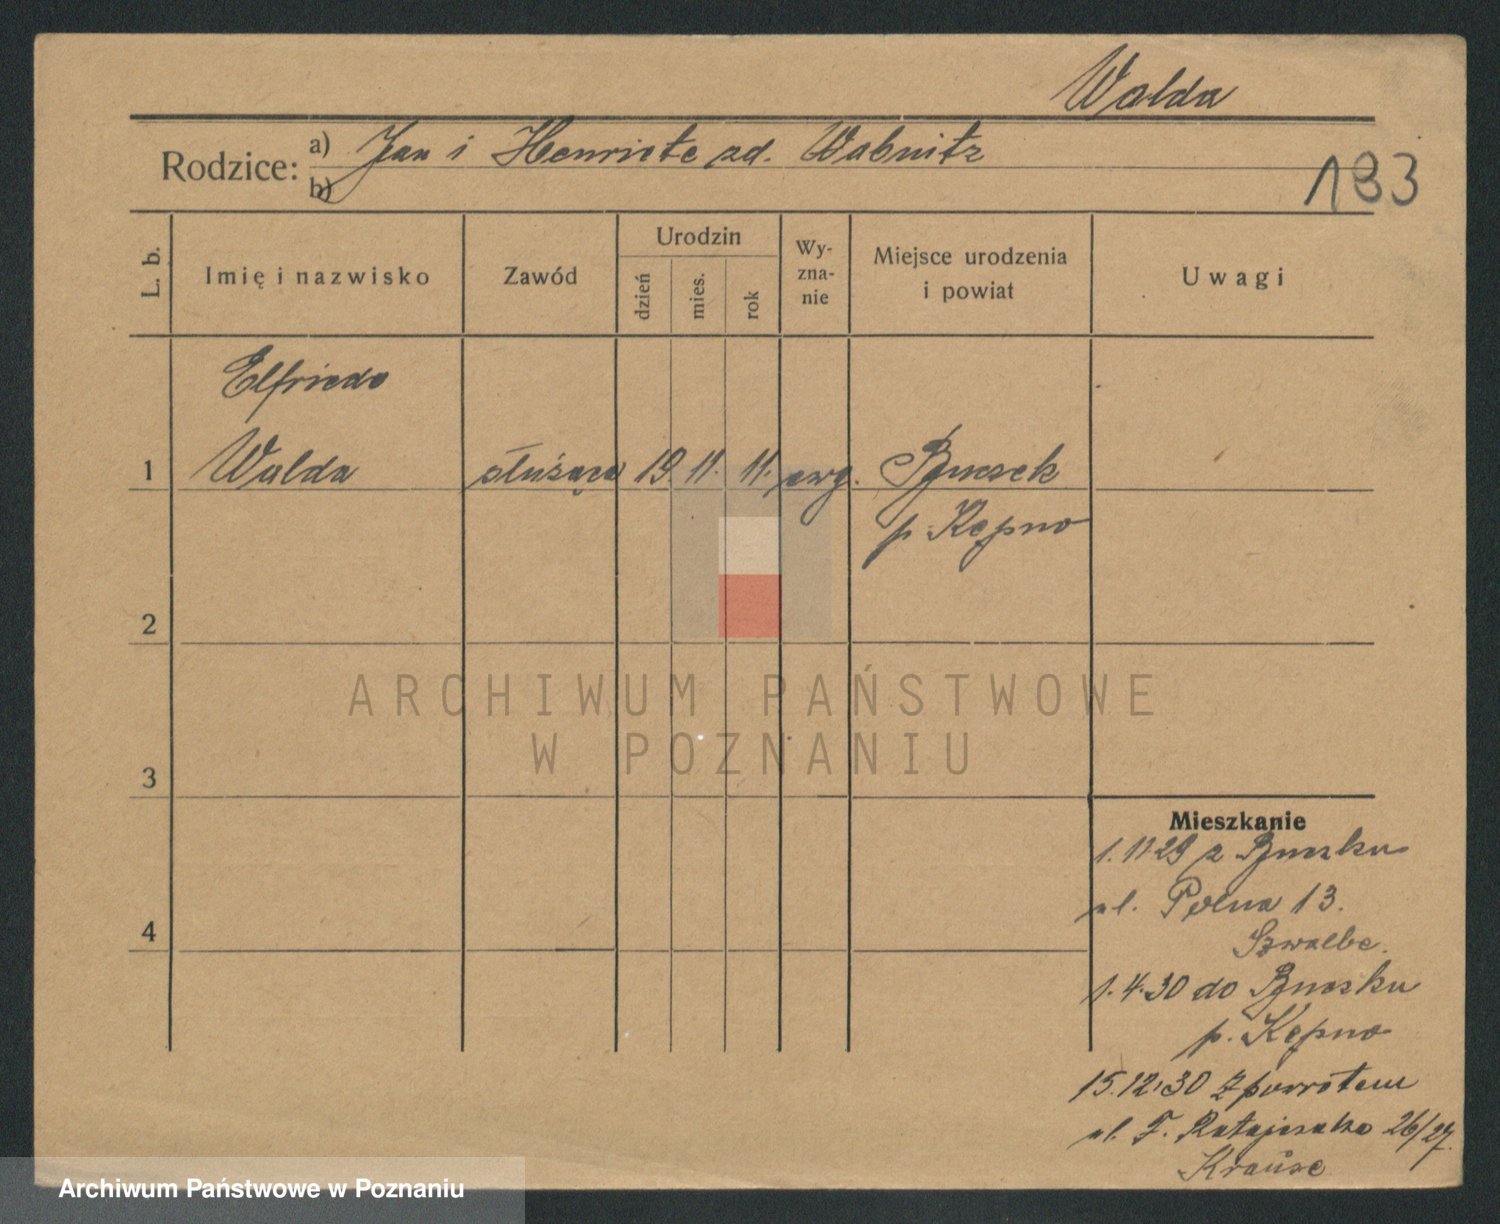 Walda
Rodzice: a) Jan i Henriete zd. Wabnitz
b)
183
L. b.
Imię i nazwisko
Zawód
Urodzin
dzień
mies.
rok
Wy-
zna-
nie
Miejsce urodzenia
i powiat
Uwagi
Elfriede
1 Walda służąca 19. 11. 11. ewg.
p. Kępno
2
ARCHIWUM PAŃSTWOWE
W POZNANIU
3
Mieszkanie
1.11.29 z
ul. Polna 13.
4
Szwalbe.
1.4.30 do
p. Kępno
15.12.30 z powrotem
ul. F. Ratajczaka 26/27.
Krause
Archiwum Państwowe w Poznaniu